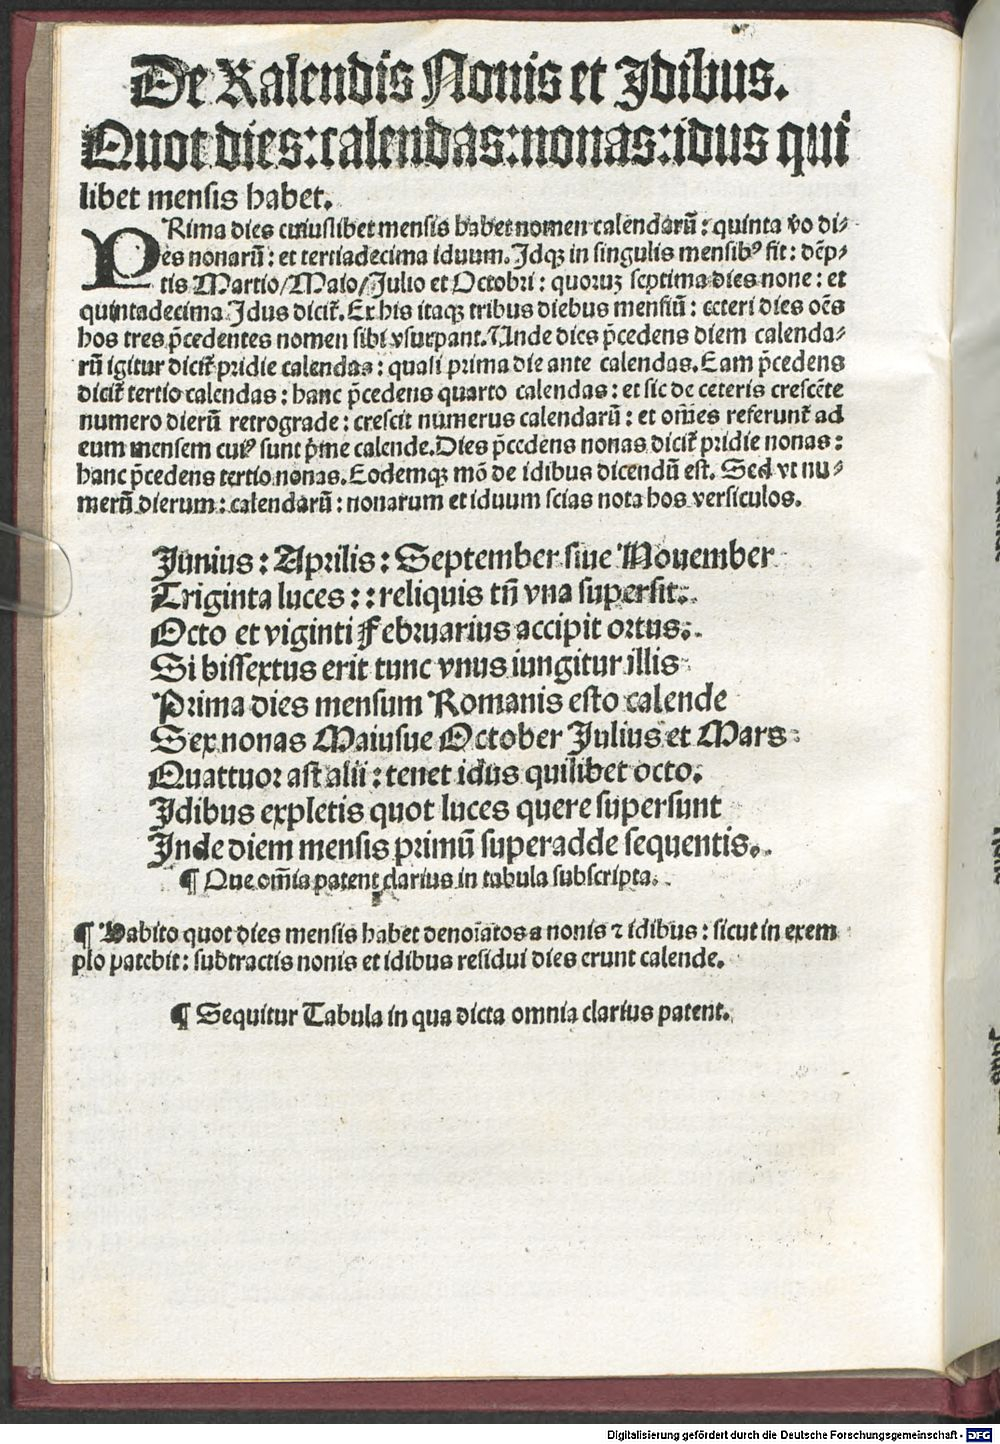 De Kalendis Nonis et Idibus.
Quot dies: calendas: nonas: idus qui
libet mensis habet.
PRima dies cuiuslibet mensis habet nomen calendarū: quinta v̄o di⸗
es nonarū: et tertiadecima iduum. Idqꝫ in singulis mensibꝰ fit: dēp⸗
tis Martio/Maio/Julio et Octobri: quoruꝫ septima dies none: et
quintadecima Idus dicit᷑. Ex his itaqꝫ tribus diebus mensiū: ceteri dies oēs
hos tres p̄cedentes nomen sibi vsurpant. Unde dies p̄cedens diem calenda⸗
rū igitur dicit᷑ pridie calendas: quasi prima die ante calendas. Eam p̄cedens
dicit᷑ tertio calendas: hanc p̄cedens quarto calendas: et sic de ceteris crescēte
numero dierū retrograde: crescit numerus calendarū: et om̄es referunt᷑ ad
eum mensem cuiꝰ sunt p̄me calende. Dies p̄cedens nonas dicit᷑ pridie nonas:
hanc p̄cedens tertio nonas. Eodemqꝫ mō de idibus dicendū est. Sed vt nu⸗
merū dierum: calendarū: nonarum et iduum scias nota hos versiculos.
Junius: Aprilis: September siue Nouember
Triginta luces:: reliquis tn̄ vna supersit.
Octo et viginti Februarius accipit ortus.
Si bissextus erit tunc vnus iungitur illis
Prima dies mensum Romanis esto calende
Sex nonas Maiusue October Julius et Mars
Quattuor ast alii: tenet idus quilibet octo.
Idibus expletis quot luces quere supersunt
Inde diem mensis primū superadde sequentis.
¶ Que om̄ia patent clarius in tabula subscripta.
¶ Habito quot dies mensis habet denoīatos a nonis ⁊ idibus: sicut in exem
plo patebit: subtractis nonis et idibus residui dies erunt calende.
¶ Sequitur Tabula in qua dicta omnia clarius patent.
Digitalisierung gefördert durch die Deutsche Forschungsgemeinschaft - DFG